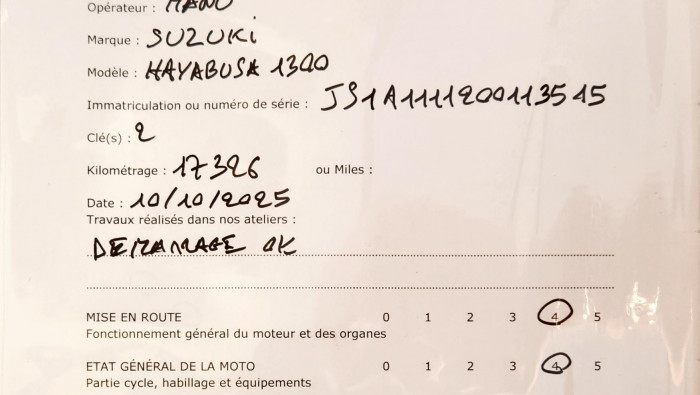 Opérateur : MANU
Marque : SUZUKi
Modèle : HAYABUSA 1300
Immatriculation ou numéro de série : JS1A1111200113545
Clé(s) : 2
Kilométrage : 17326 ou Miles :
Date : 10/10/2025
Travaux réalisés dans nos ateliers :
DEMARRAGE OK
MISE EN ROUTE 0 1 2 3 4 5
Fonctionnement général du moteur et des organes
ETAT GÉNÉRAL DE LA MOTO 0 1 2 3 4 5
Partie cycle, habillage et équipements